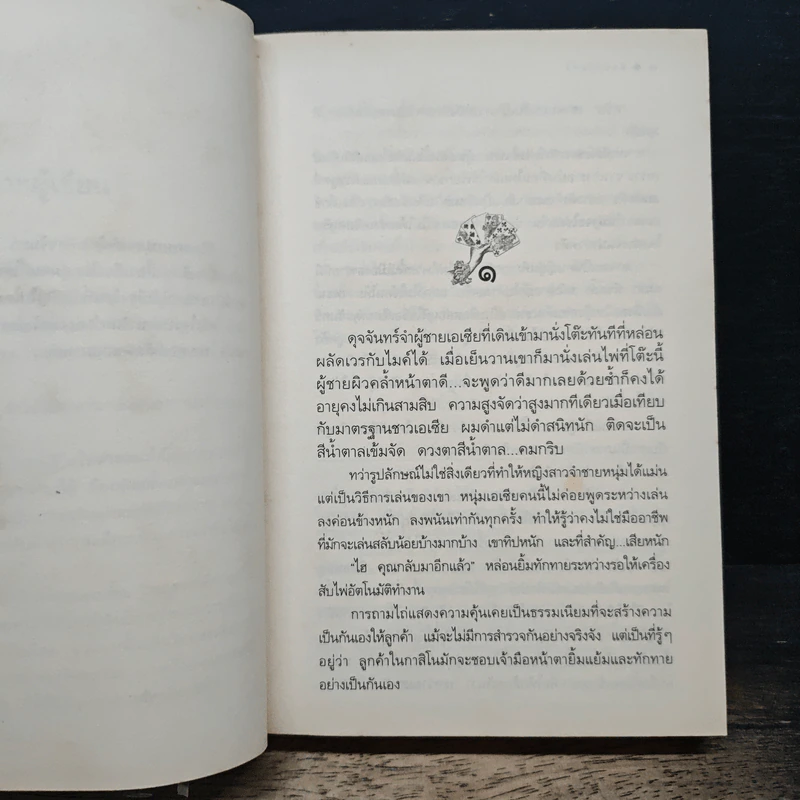 ๑
ดุจจันทร์จำผู้ชายเอเซียที่เดินเข้ามานั่งโต๊ะทันทีที่หล่อน
ผลัดเวรกับไมค์ได้ เมื่อเย็นวานเขาก็มานั่งเล่นไพ่ที่โต๊ะนี้
ผู้ชายผิวคล้ำหน้าตาดี...จะพูดว่าดีมากเลยด้วยซ้ำก็คงได้
อายุคงไม่เกินสามสิบ ความสูงจัดว่าสูงมากทีเดียวเมื่อเทียบ
กับมาตรฐานชาวเอเซีย ผมดำแต่ไม่ดำสนิทนัก ติดจะเป็น
สีน้ำตาลเข้มจัด ดวงตาสีน้ำตาล...คมกริบ
ทว่ารูปลักษณ์ไม่ใช่สิ่งเดียวที่ทำให้หญิงสาวจำชายหนุ่มได้แม่น
แต่เป็นวิธีการเล่นของเขา หนุ่มเอเซียคนนี้ไม่ค่อยพูดระหว่างเล่น
ลงค่อนข้างหนัก ลงพนันเท่ากันทุกครั้ง ทำให้รู้ว่าคงไม่ใช่มืออาชีพ
ที่มักจะเล่นสลับน้อยบ้างมากบ้าง เขาทิปหนัก และที่สำคัญ...เสียหนัก
"ไฮ คุณกลับมาอีกแล้ว" หล่อนยิ้มทักทายระหว่างรอให้เครื่อง
สับไพ่อัตโนมัติทำงาน
การถามไถ่แสดงความคุ้นเคยเป็นธรรมเนียมที่จะสร้างความ
เป็นกันเองให้ลูกค้า แม้จะไม่มีการสำรวจกันอย่างจริงจัง แต่เป็นที่รู้ๆ
อยู่ว่า ลูกค้าในกาสิโนมักจะชอบเจ้ามือหน้าตายิ้มแย้มและทักทาย
อย่างเป็นกันเอง